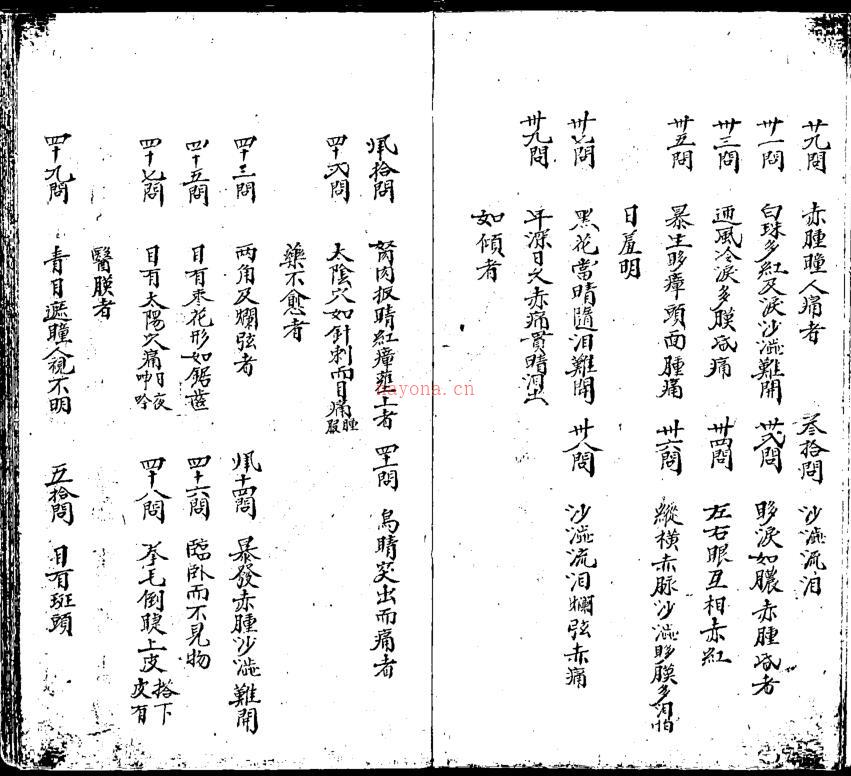 廿九問 赤腫瞳人痛者 叁拾問 沙澁流泪
卅一問 白珠多紅及淚沙澁難開 卅弍問 眵淚如膿赤腫者
卅三問 迎風冷淚多膜痛 卅四問 左右眼互相赤紅
卅五問 暴生眵瘴頭面腫痛 卅六問 縱橫赤脉沙澁眵膜多有怕
日羞明
卅七問 黑花當睛隨泪難開 卅八問 沙澁流泪爛弦赤痛
卅九問 年深日久赤痛貫睛泪出
如傾者
拾問 努肉扳睛紅瘴上者 四十一問 烏睛突出而痛者
四十弍問 太陰穴如針刺而目痛腫
藥不愈者
四十三問 两角及爛弦者 十四問 暴發赤腫沙澁難開
四十五問 目有枣花形如鋸齒 四十六問 臨卧而不見物
四十七問 目有太陽穴痛日夜呻吟 四十八問 拳毛倒睫上皮搭下皮有
醫膜者
四十九問 青目遮瞳人視不明 五拾問 目有斑頭
nayona.cn